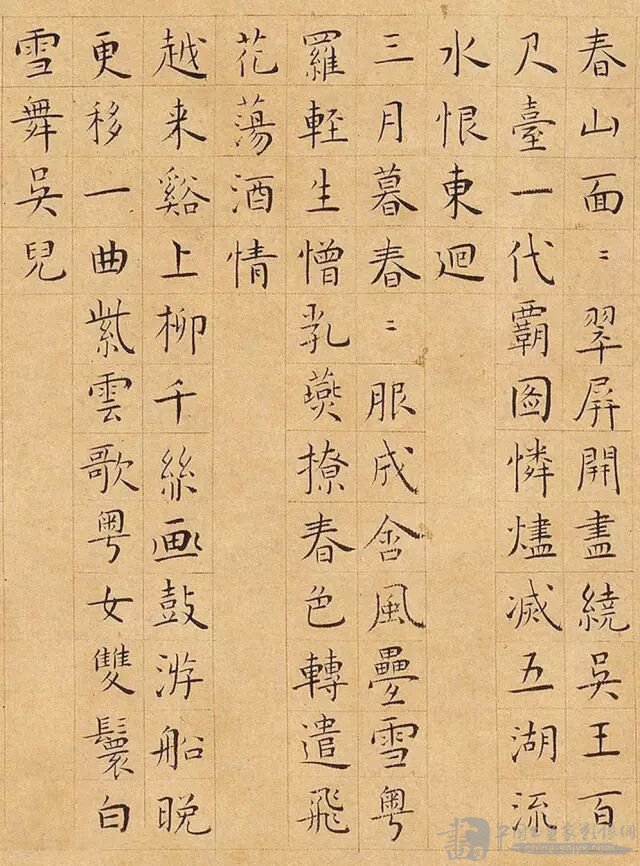 春山面〻翠屏開盡繞吳王百
尺臺一代覇圖憐燼滅五湖流
水恨東迴
三月暮春〻服成含風疊雪粵
羅輕生憎乳燕撩春色轉遣飛
花蕩酒情
越来谿上柳千絲画鼓游船晚
更移一曲紫雲歌粵女雙鬟白
雪舞吳兒